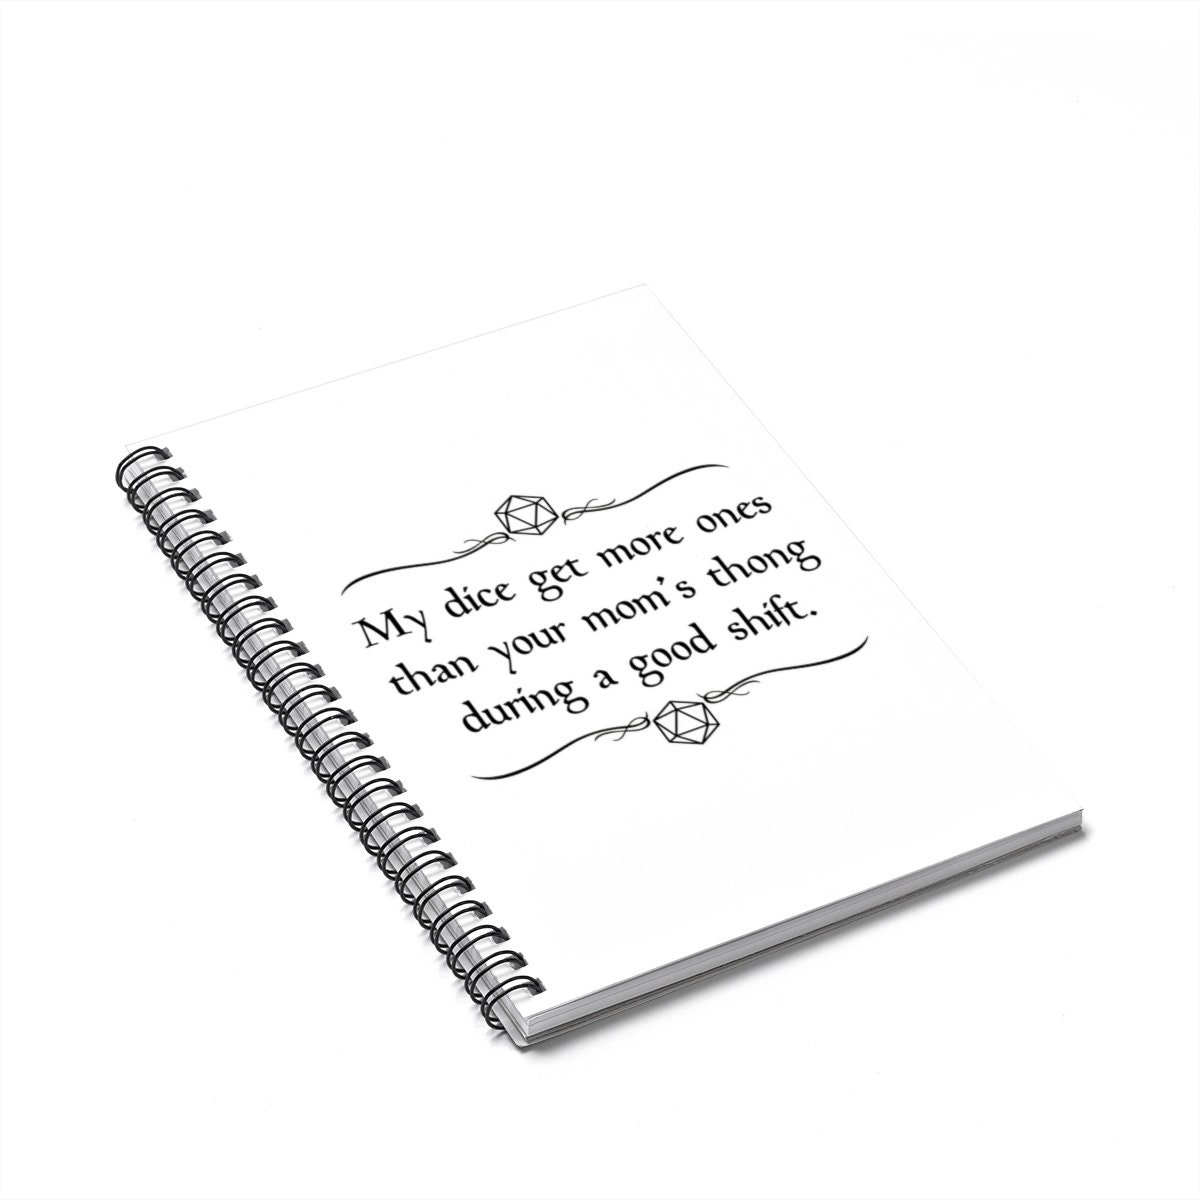 My dice get more ones
than your mom's thong
during a good shift.